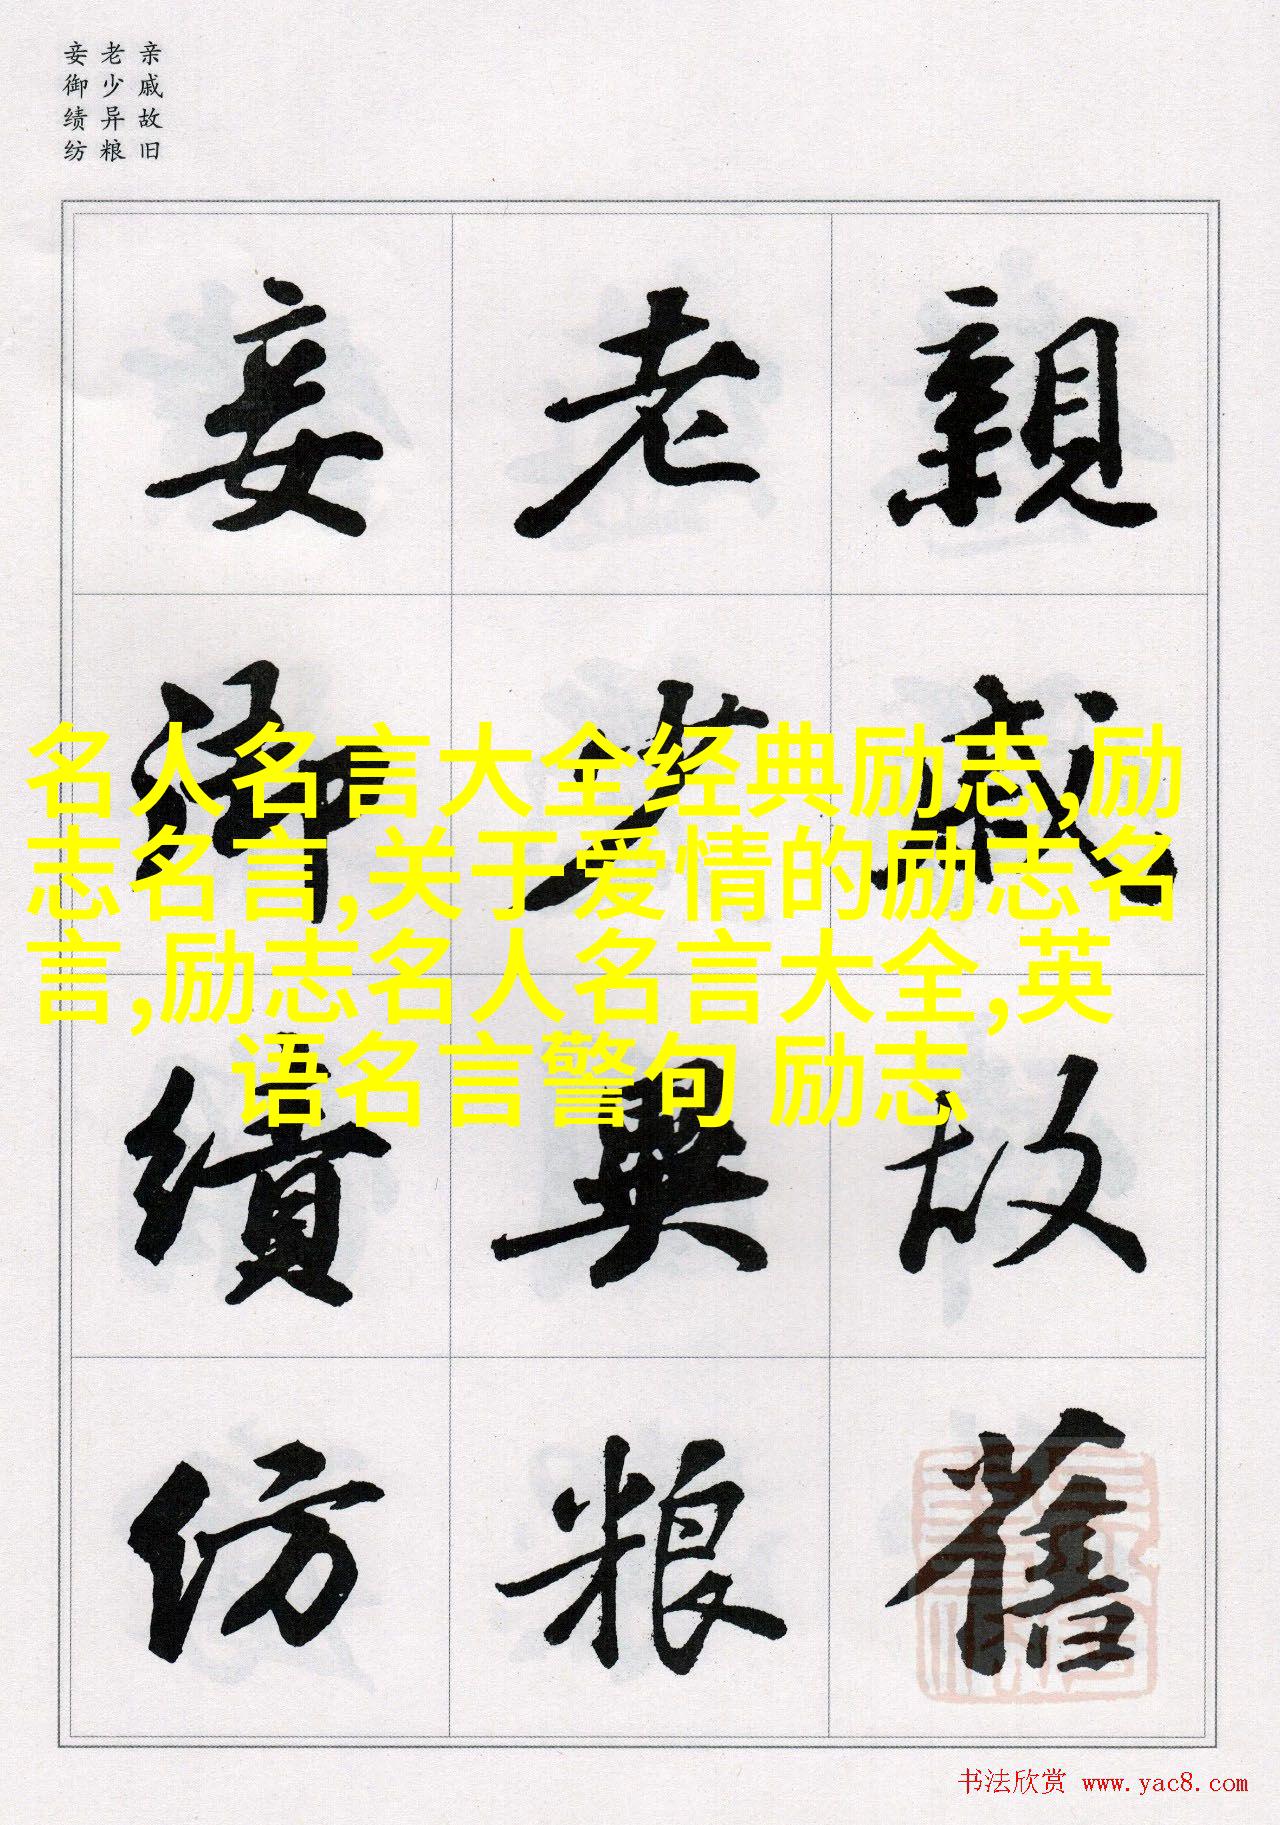 亲戚故旧
老少异粮
妾御绩纺
親戚故舊
老少異粮
妾御績紡
名人名言大全经典励志,励
志名言,关于爱情的励志名
言,励志名人名言大全,英
语名言警句 励志
书法欣赏 www.yac8.com